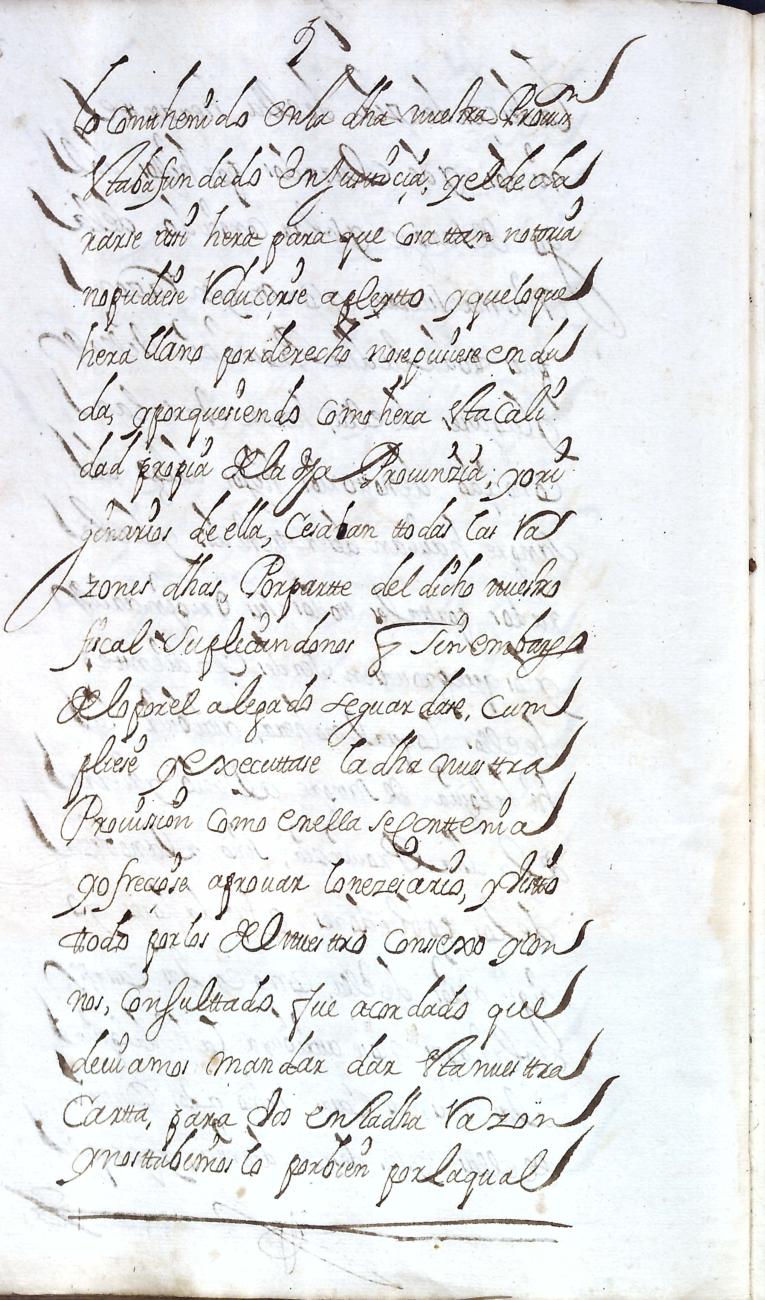 lo contthenido enla dha nuestra Provi.on
estaba fundado en Justticia, y el decla
rarse assi hera para que cosa ttan nottoria
no pudiese reducirse a pleytto y que lo que
hera llano por derecho no se pusiese en du
da, y porque siendo como hera esta cali
dad propia de la dha Provinzia, y ori
ginarios de ella, cesaban ttodas las ra
zones dhas, Por partte del dicho nuestro
fiscal suplicandonos q Sin embargo
de lo por el alegado se guardase, cum
pliese y executtase la dha nuesttra
Provision como en ella se conttenia
y ofreciose a provar lo nezesario, y visto
ttodo por los del nuesttro Consexo y con
nos, Consulttado, fue acordado que
deviamos mandar dar esta nuesttra
Cartta, para vos en la dha razon
y nos ttubimos lo por bien por la qual